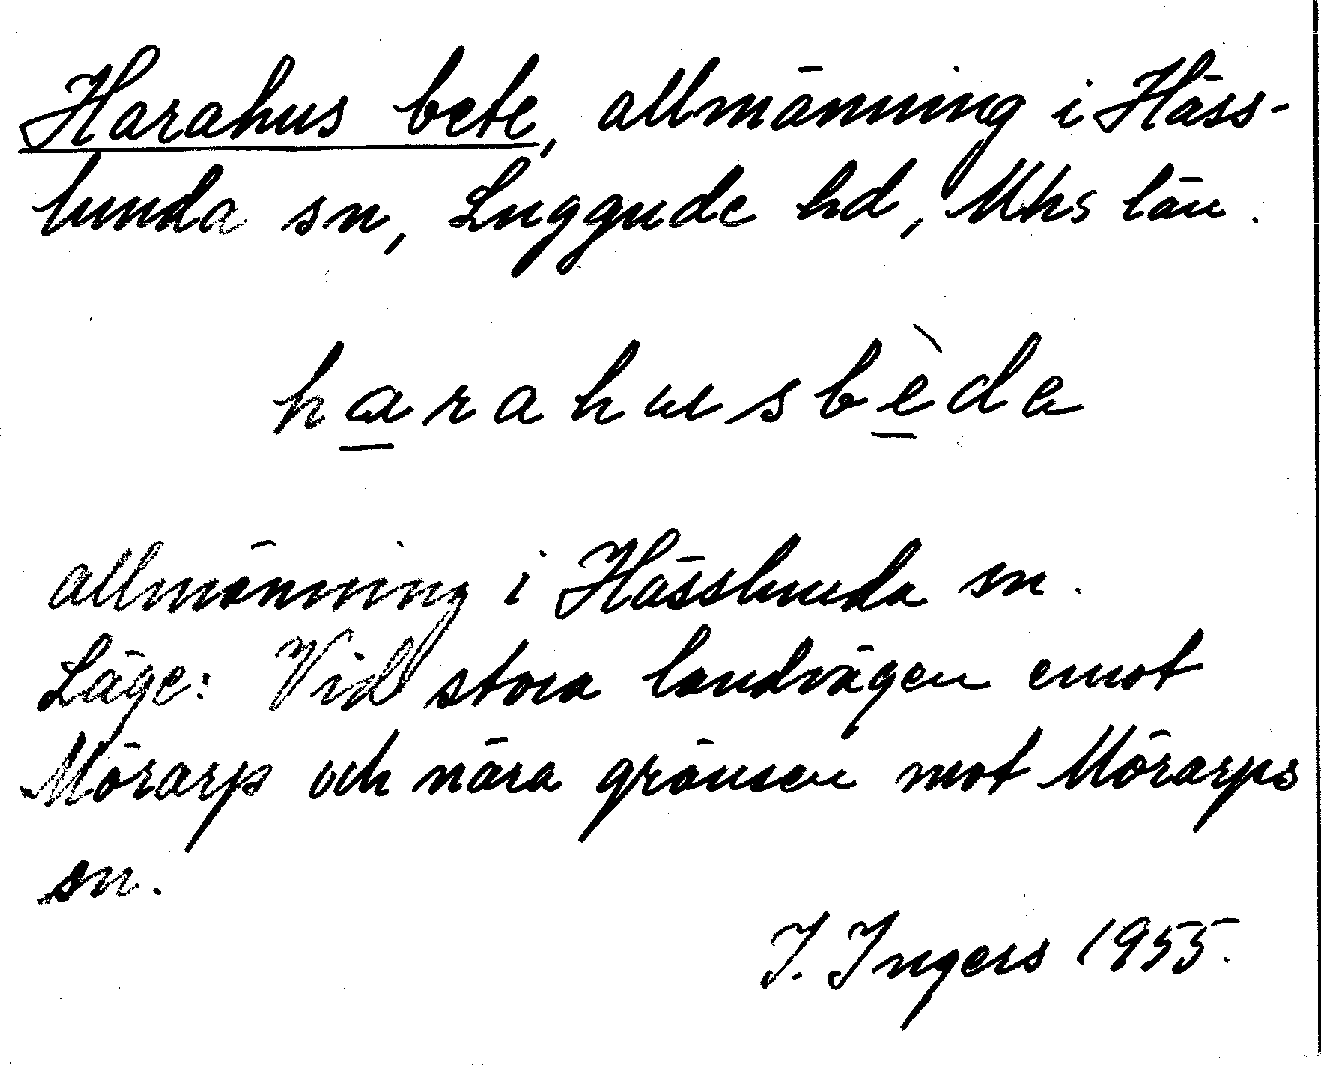 Harahus bete, allmänning i Häss-
lunda sn, Luggude hd, Mhs län.
harahusbède
allmänning i Hässlunda sn.
Läge: Vid stora landvägen emot
Mörarp och nära gränsen mot Mörarps
sn.
I. Ingers 1955.